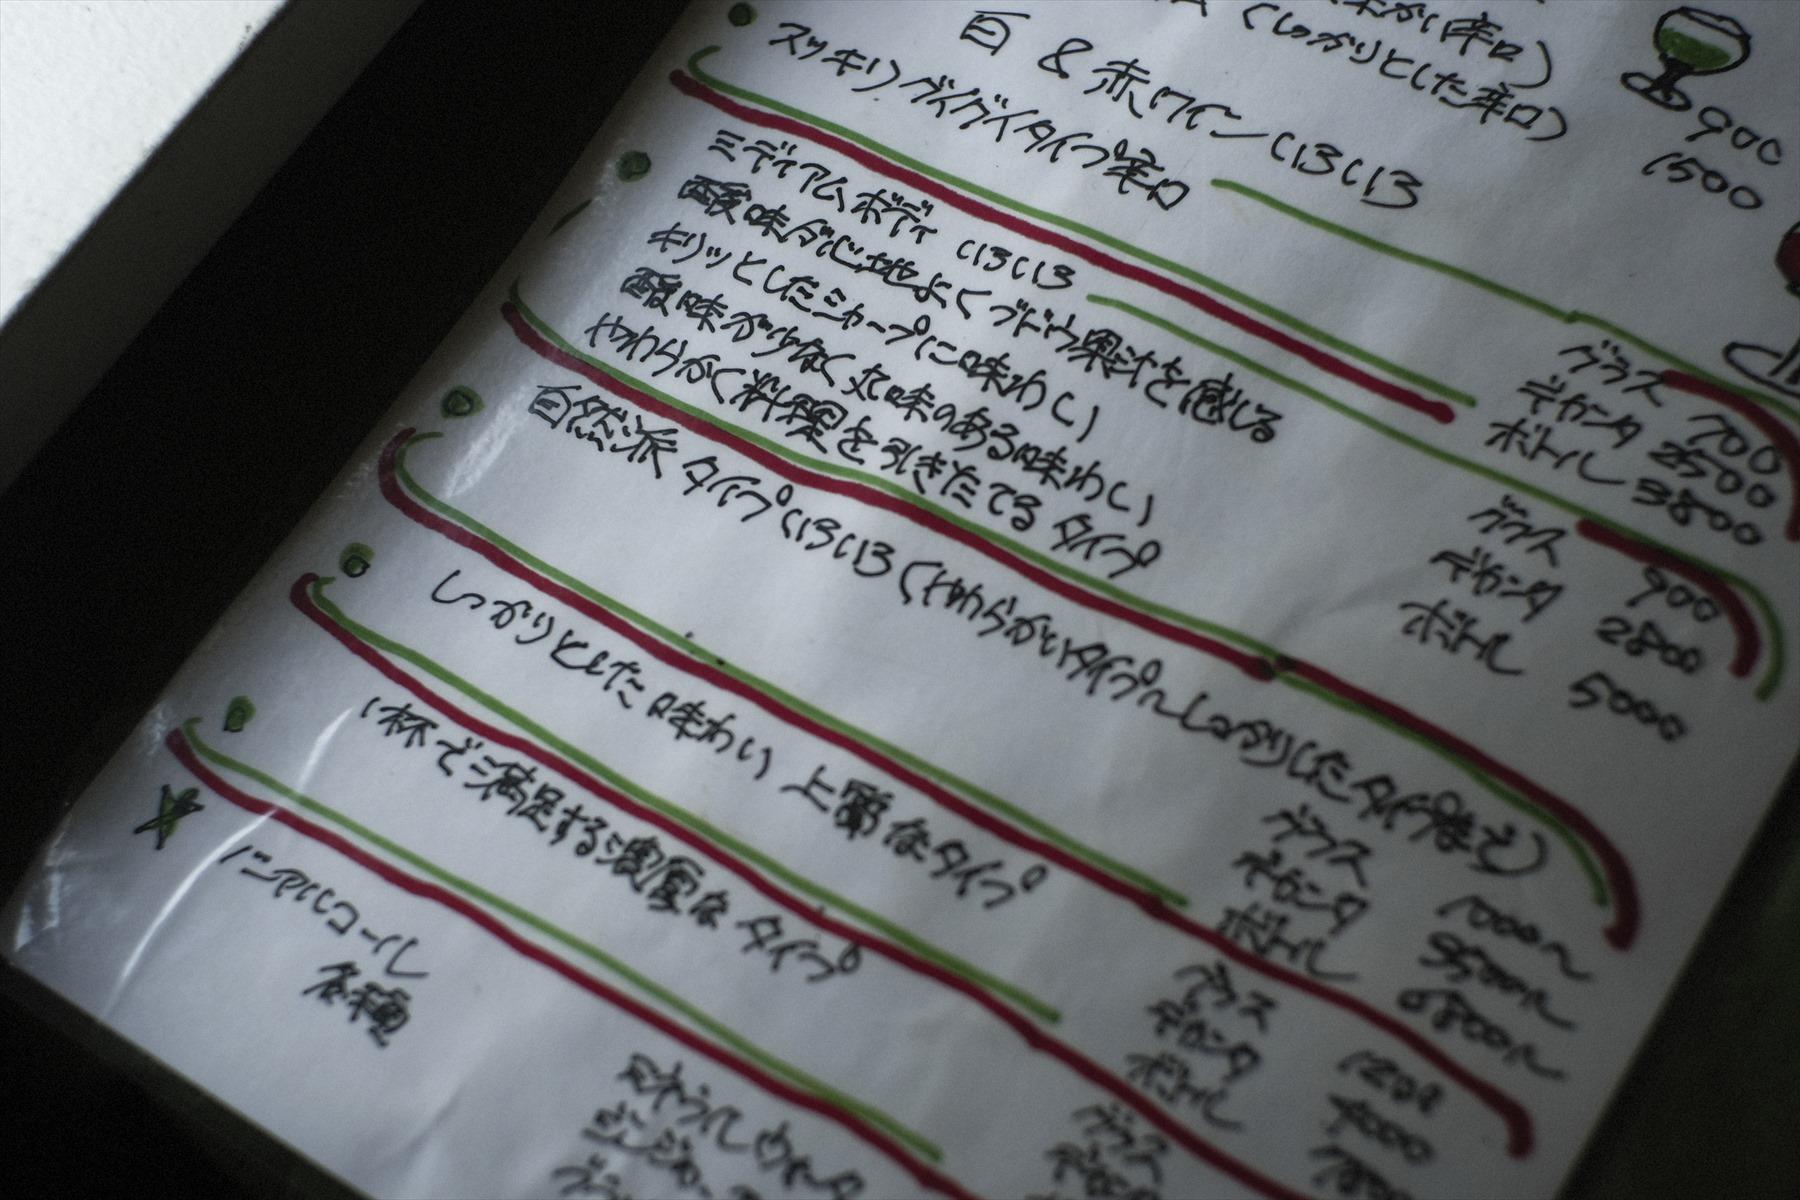 (しっかりとした辛口)
900
1500
白 & 赤ワイン いろいろ
スッキリ グイグイタイプ 辛口
グラス 700
デカンタ 2500
ボトル 3800
ミディアムボディ いろいろ
酸味が心地よく ブドウ果汁を感じる
キリッとしたシャープに味わい
酸味が少なく 丸味のある味わい
やわらかく料理を引きたてる タイプ
グラス 900
デカンタ 2800
ボトル 5000
自然派 タイプ いろいろ (やわらかいタイプ〜しっかりしたタイプまで)
グラス 1000〜
デカンタ 3500〜
ボトル 6800〜
しっかりとした味わい 上質なタイプ
グラス 1200
デカンタ 4000
ボトル
1杯で満足する濃厚な タイプ
グラス
ノンアルコール
各種
ミネラルウォータ
ジンジャー